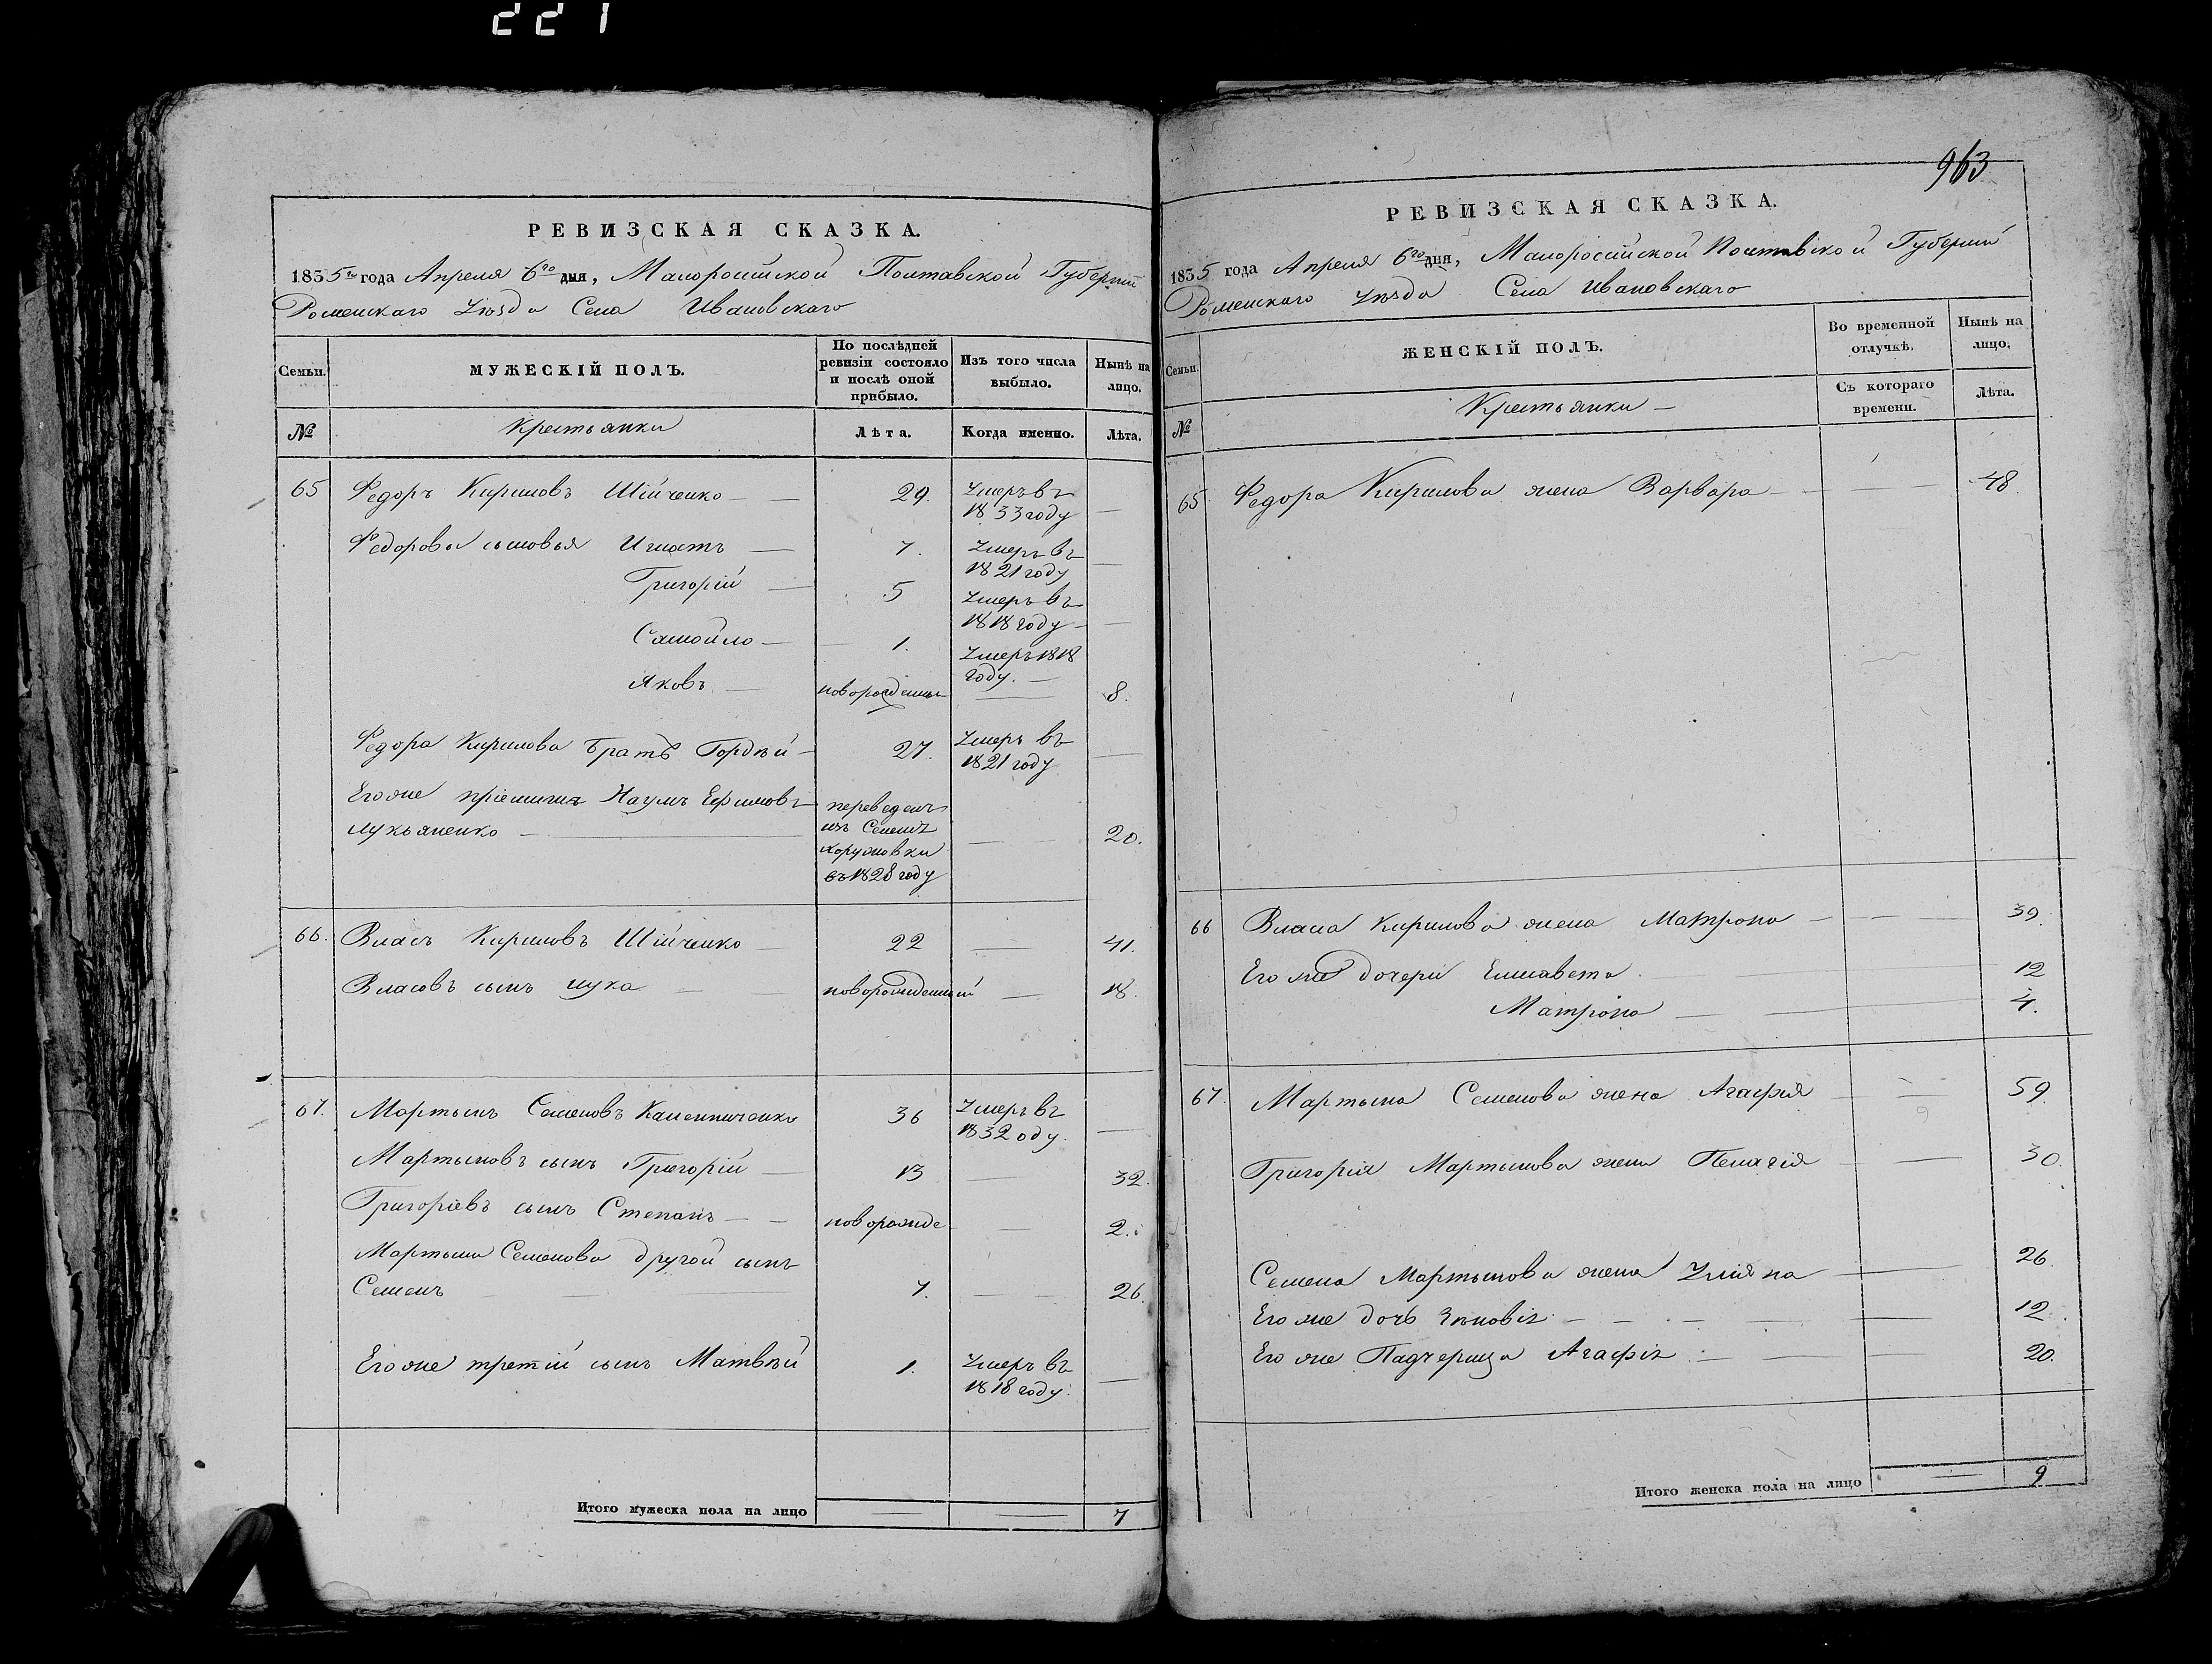 221
РЕВИЗСКАЯ СКАЗКА.
1835го года Апреля 6го дня, Малоросiйской Полтавской Губернiи
Роменскаго Уѣзда Села Ивановскаго
Семьи.
МУЖЕСКIЙ ПОЛЪ.
По послѣдней ревизiи состояло и послѣ оной прибыло.
Изъ того числа выбыло.
Нынѣ на лицо.
№
Крестьянки
Лѣта.
Когда именно.
Лѣта.
65 Федоръ Кириловъ Шiйченко — 29. Умеръ въ 1833 году —
Федоровы сыновья Игнатъ — 7. Умеръ въ 1821 году —
Григорiй — 5 Умеръ въ 1818 году —
Самойло — 1. Умеръ 1818 году. —
Яковъ — новорожденъ — 8.
Федора Кирилова братъ Гордѣй — 27. Умеръ въ 1821 году —
Его же прiемышъ Наумъ Ефимовъ
Лукьяненко — переведенъ
изъ Селенiя
Хоружовки
въ 1828 году — 20.
66. Власъ Кириловъ Шiйченко — 22 — 41.
Власовъ сынъ Лука — новорожденный — 18.
67. Мартынъ Семеновъ 36 Умеръ въ 1832 оду. —
Мартыновъ сынъ Григорiй — 13 — 32.
Григорiевъ сынъ Степанъ — новорожде — 2.
Мартына Семенова другой сынъ
Семенъ — 7. — 26.
Его же третiй сынъ Матвѣй 1. Умеръ въ 1818 году. —
Итого мужеска пола на лицо — — 7
963
РЕВИЗСКАЯ СКАЗКА.
1835 года Апреля 6го дня, Малоросiйской Полтавской Губернiи
Роменскаго Уѣзда Села Ивановскаго
Семьи.
ЖЕНСКIЙ ПОЛЪ.
Во временной отлучкѣ.
Нынѣ на лицо.
№
Крестьянки —
Съ котораго времени.
Лѣта.
65. Федора Кирилова жена Варвара — 48.
66 Власа Кирилова жена Матрона — 39.
Его же дочери Елисавета — 12
Матрона — 4.
67. Мартына Семенова жена Агафiя — 59.
Григорiя Мартынова жена Пелагiя — 30.
Семена Мартынова жена Улiяна — 26.
Его же дочь Зѣновiя — 12.
Его же Падчерица Агафiя — 20.
Итого женска пола на лицо — 9